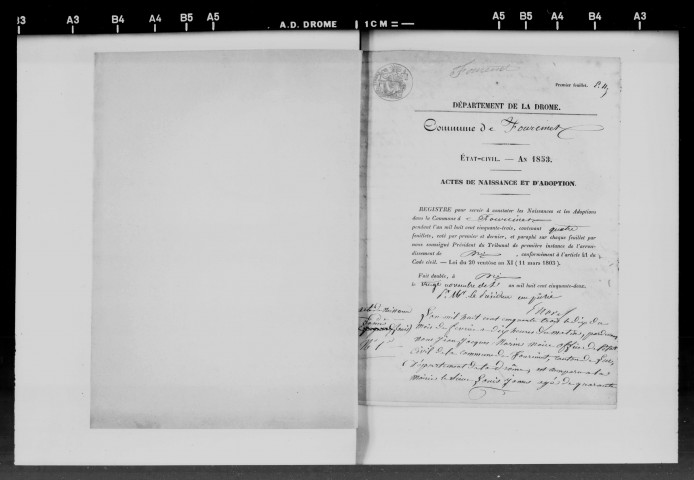 A3 B4 A4 B5 A5 A.D. DROME 1 CM A5 B5 A4 B4 A3
Premier feuillet.
DÉPARTEMENT DE LA DROME.
Commune de Fourcinet
ÉTAT-CIVIL. — AN 1853.
ACTES DE NAISSANCE ET D'ADOPTION.
REGISTRE pour servir à constater les Naissances et les Adoptions
dans la Commune d e Fourcinet
pendant l'an mil huit cent cinquante-trois, contenant quatre
feuillets, coté par premier et dernier, et paraphé sur chaque feuillet par
nous soussigné Président du Tribunal de première instance de l'arron-
dissement de Die, conformément à l'article 41 du
Code civil. — Loi du 20 ventôse an XI (11 mars 1803).
Fait double, à Die
le vingt novembre an mil huit cent cinquante-deux.
L'an mil huit cent cinquante trois
mois de février à dix heures du matin, pardevant
nous Jean Jacques maire officier de l'état
civil de la commune de Fourcinet, canton de
Département de la Drôme, est comparu à la
mairie le sieur Louis agé de quarante